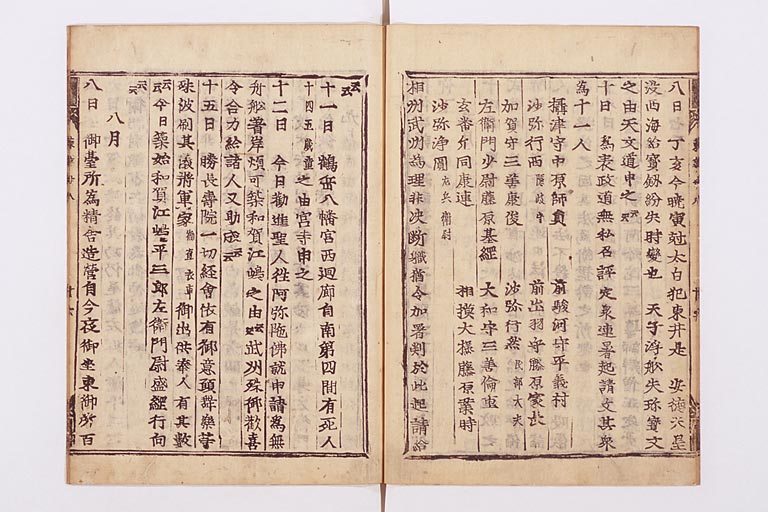 八日 丁亥今暁寅尅太白犯東井是 安徳天皇
没西海給寶劔紛失時變也 天子浮船失珠寶文
之由天文道申之云云
十日 爲表政道無私召評定衆連署起請文其衆
爲十一人
攝津守中原師員 前駿河守平義村
沙弥行西 隠岐守 前出羽守藤原家長
加賀守三善康俊 沙弥行然 民部大夫
左衛門少尉藤原基綱 大和守三善倫重
玄番允同康連 相撲大掾藤原業時
沙弥浄圓 左兵衛尉
相州武州爲理非決断職猶令加署判於此起請給
云云
十一日 鶴岳八幡宮西廻廊自南第四間有死人
十四五歳童之由宮寺申之
十二日 今日勧進聖人徃阿弥陁佛就申請爲無
舟船著岸煩可築和賀江嶋之由云云 武州殊御歓喜
令合力給諸人又助成云云
十五日 勝長壽院一切経會依有御意願舞樂等
殊被刷其儀将軍家 御直衣車 御出供奉人有其數
云云今日築始和賀江嶋平三郎左衛門尉盛綱行向
云云
八月
八日 御臺所爲精舎造營自今夜御坐東御所百